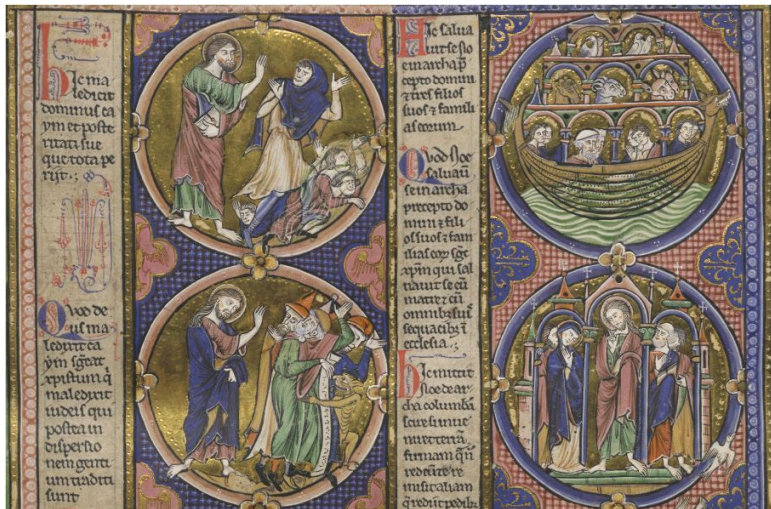 Hic ma
ledicit
dominus ca
ym et poste
ritati sue
que tota pe
rijt.
Quod de
us ma
ledixit ca
ym sgcat
xpistum q̄
maledixit
iudeis qui
postea in
dispersio
nem genti
um traditi
sunt
Hic salua
uit se noe
in archa p̄
cepto domini
⁊ tres filios
suos ⁊ famili
as eorum
Quod Noe
saluaū
se in archa
precepto do
mini ⁊ fili
os suos ⁊ fam
ilias eoꝝ sgt
xp̄m qui sal
uauit se cū
matre ⁊ cū
omnibus suis
sequacibꝫ ī
ecclesia
Hic mittit
Noe de ar
cha columbā